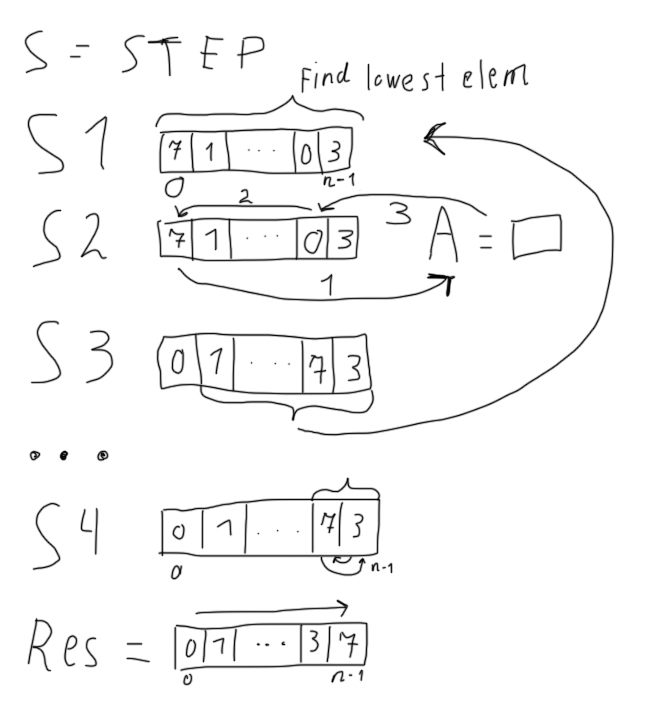 S = STEP
Find lowest elem
S1 7 1 ... 0 3
0 n-1
2
S2 7 1 ... 0 3 3 A = □
1
S3 0 1 ... 7 3
...
S4 0 1 ... 7 3
0 n-1
Res = 0 1 ... 3 7
0 n-1